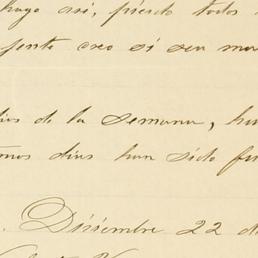 hago así, pierdo todos
gente creo si sea
dias de la semana, ha
mos dias han sido
Diciembre 22 d